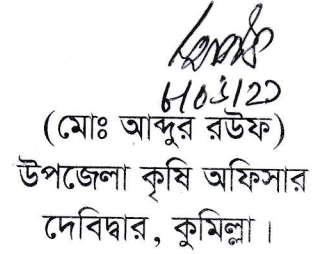 (মোঃ আব্দুর রউফ)
উপজেলা কৃষি অফিসার
দেবিদ্বার, কুমিল্লা।